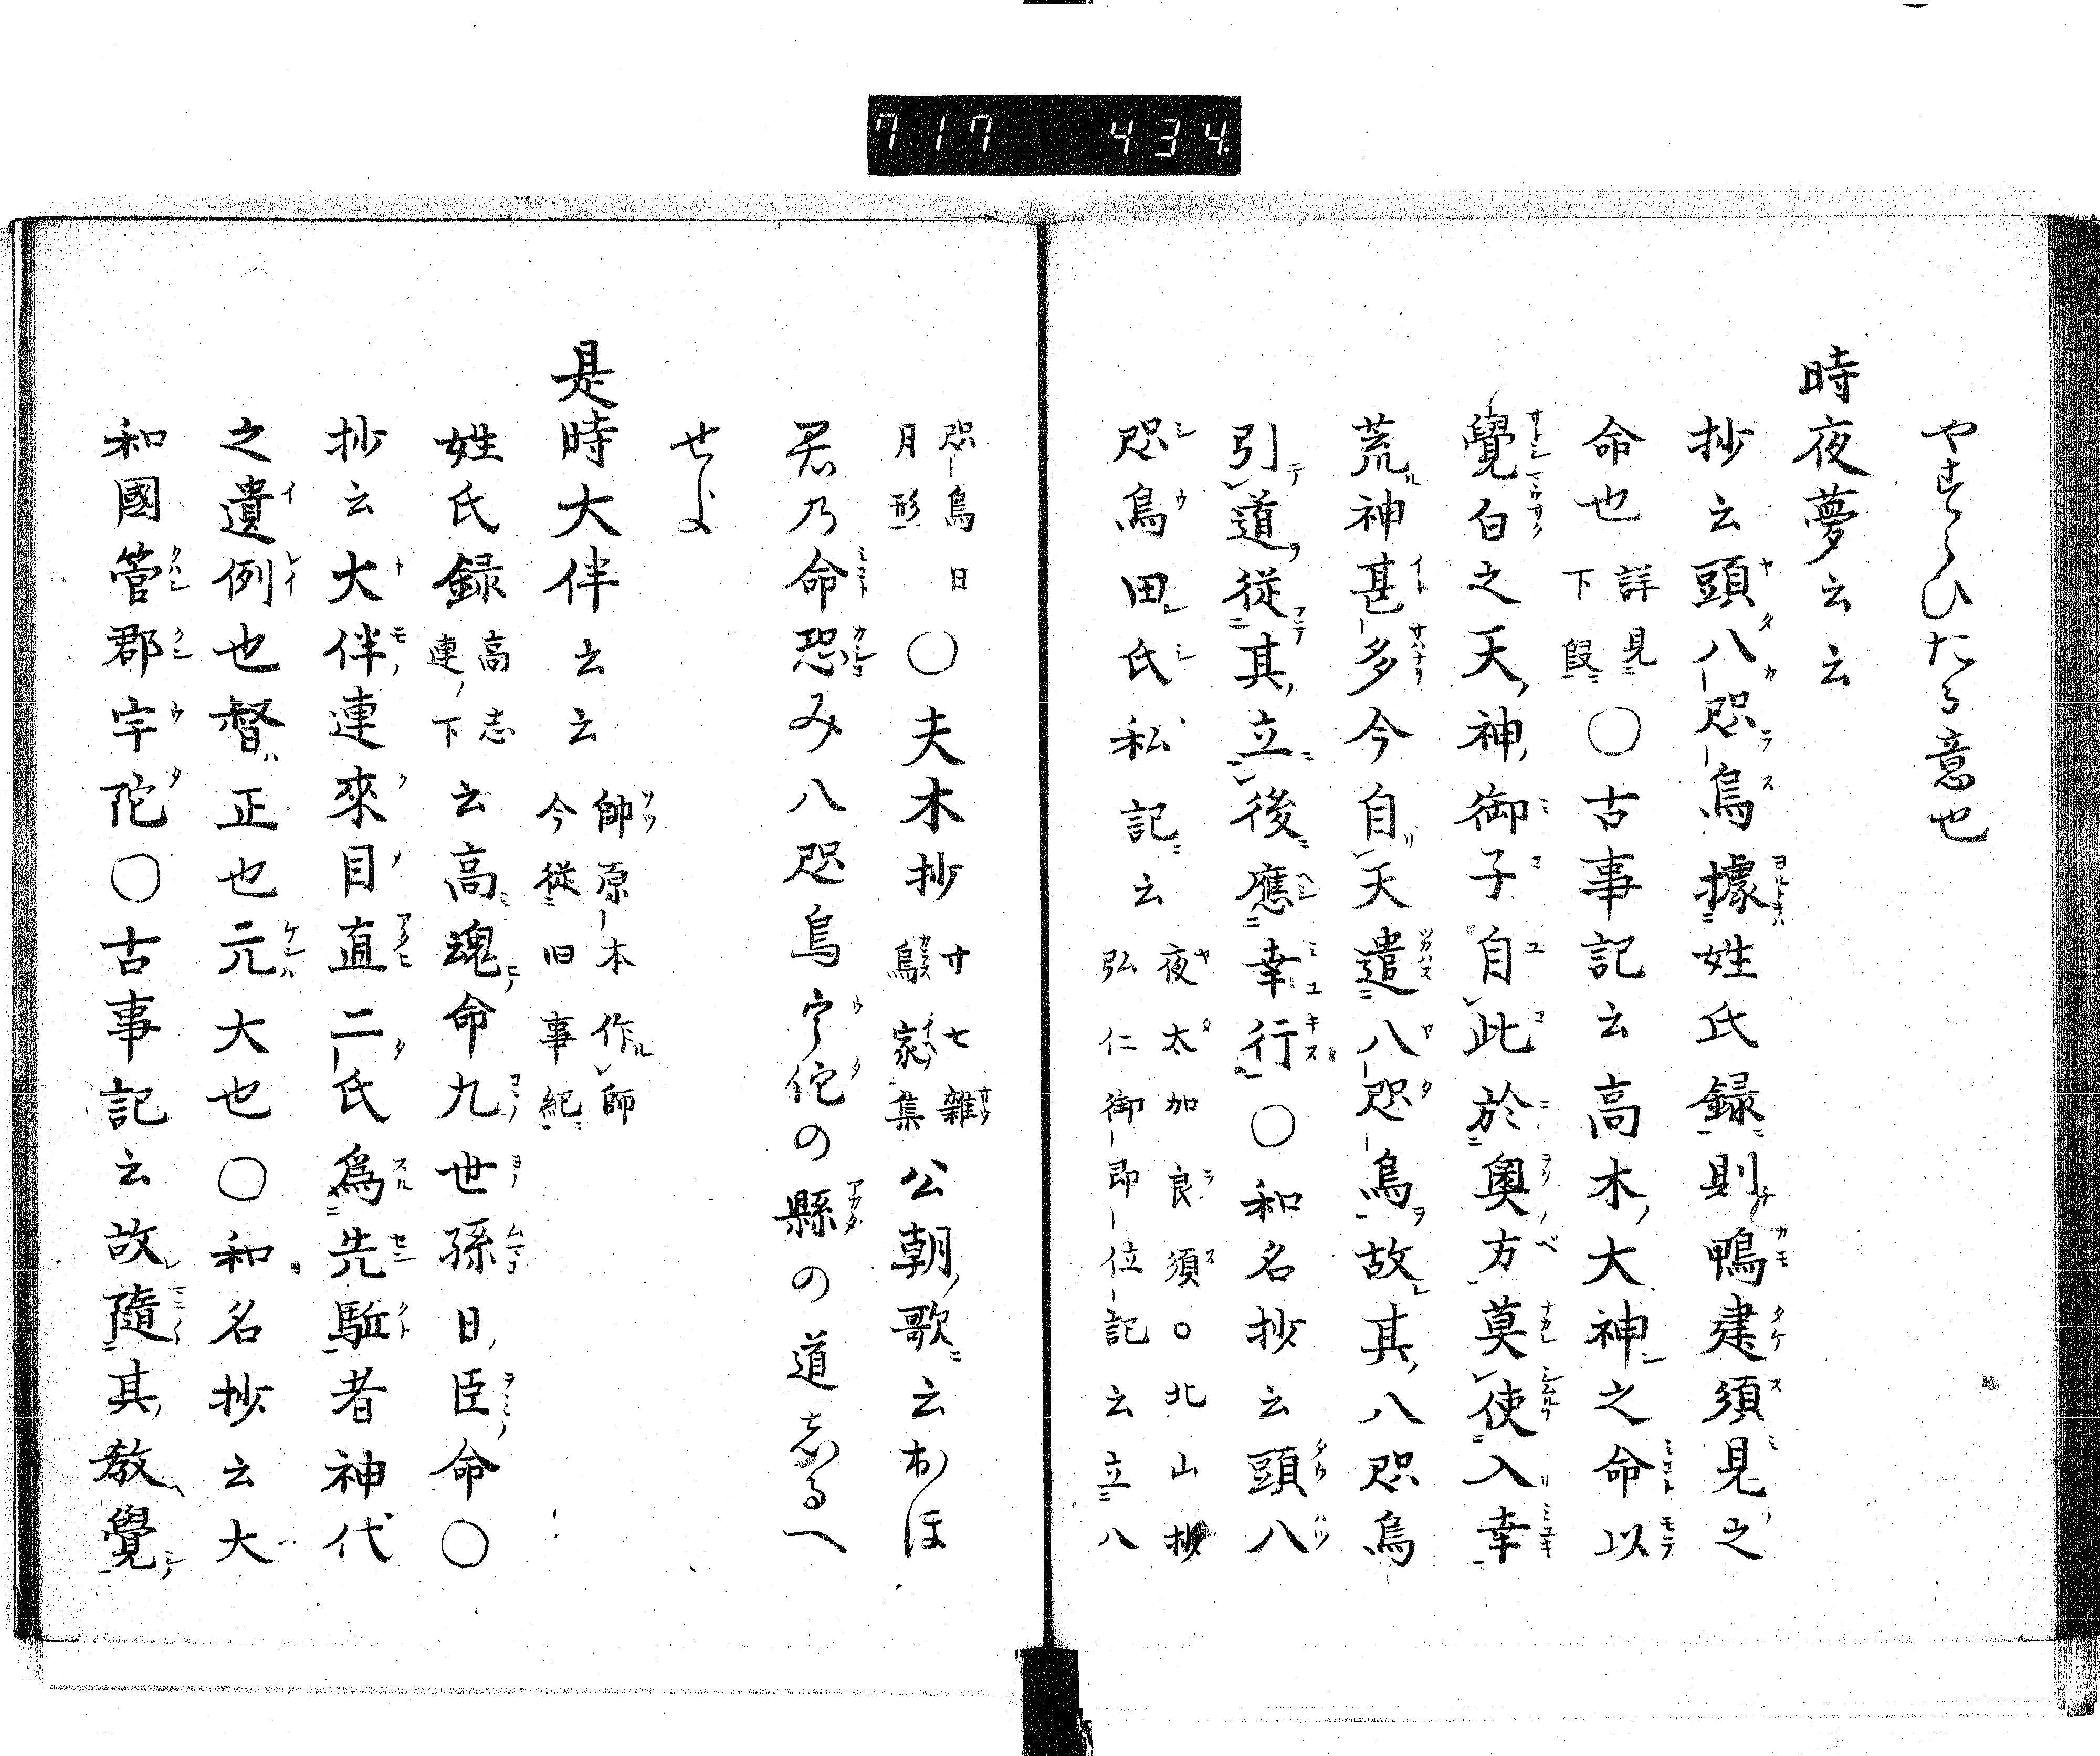 717 434
やすらひたる意也
時夜夢云云
抄云頭八咫烏據姓氏録則鴨建須見之
命也詳見下段〇古事記云高木大神之命以
覺白之天神御子自此於奧方莫使入幸
荒神甚多今自天遣八咫烏故其八咫烏
引道從其立後應幸行〇和名抄云頭八
咫烏田氏私記云夜太加良須〇北山抄弘仁御即位記云立八
咫烏日月形〇夫木抄廿七雜烏家集公朝歌云おほ
君乃命恐み八咫烏宇佗の縣の道志るへ
せよ
是時大伴云云帥原本作師今從旧事紀
姓氏録高志連下云高魂命九世孫日臣命〇
抄云大伴連來目直二氏爲先駈者神代
之遺例也督正也元大也〇和名抄云大
和國管郡宇陀〇古事記云故隨其教覺